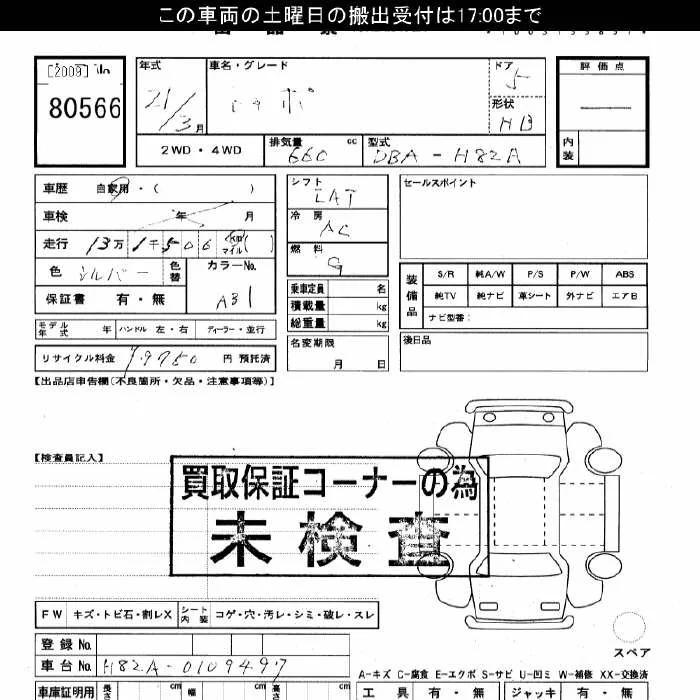 この車両の土曜日の搬出受付は17:00まで
[2009] No
80566
年式 車名・グレード ドア 評価点
21/3月 5
形状 HB
2WD・4WD 排気量 660 cc 型式 DBA-H82A 内装
車歴 自家用・( )
車検 年 月
走行 13万1千506 km マイル( )
色 シルバー 色替 カラーNo. A31
保証書 有・無
シフト LAT
冷房 AC
燃料 G
乗車定員 名
積載量 kg
総重量 kg
名変期限 月 日
セールスポイント
装備品 S/R 純A/W P/S P/W ABS
純TV 純ナビ 革シート 外ナビ エアB
ナビ型番:
後日品
モデル年式 年 ハンドル 左・右 ディーラー・並行
リサイクル料金 円 預託済
【出品店申告欄(不良箇所・欠品・注意事項等)】
【検査員記入】
買取保証コーナーの為
未検査
FW キズ・トビ石・割レX シート内装 コゲ・穴・汚レ・シミ・破レ・スレ
スペア
登録No.
車台No. H82A-0109497
A-キズ C-腐食 E-エクボ S-サビ U-凹ミ W-補修 XX-交換済
車庫証明用 長さ cm 幅 cm 高さ cm
工具 有・無 ジャッキ 有・無